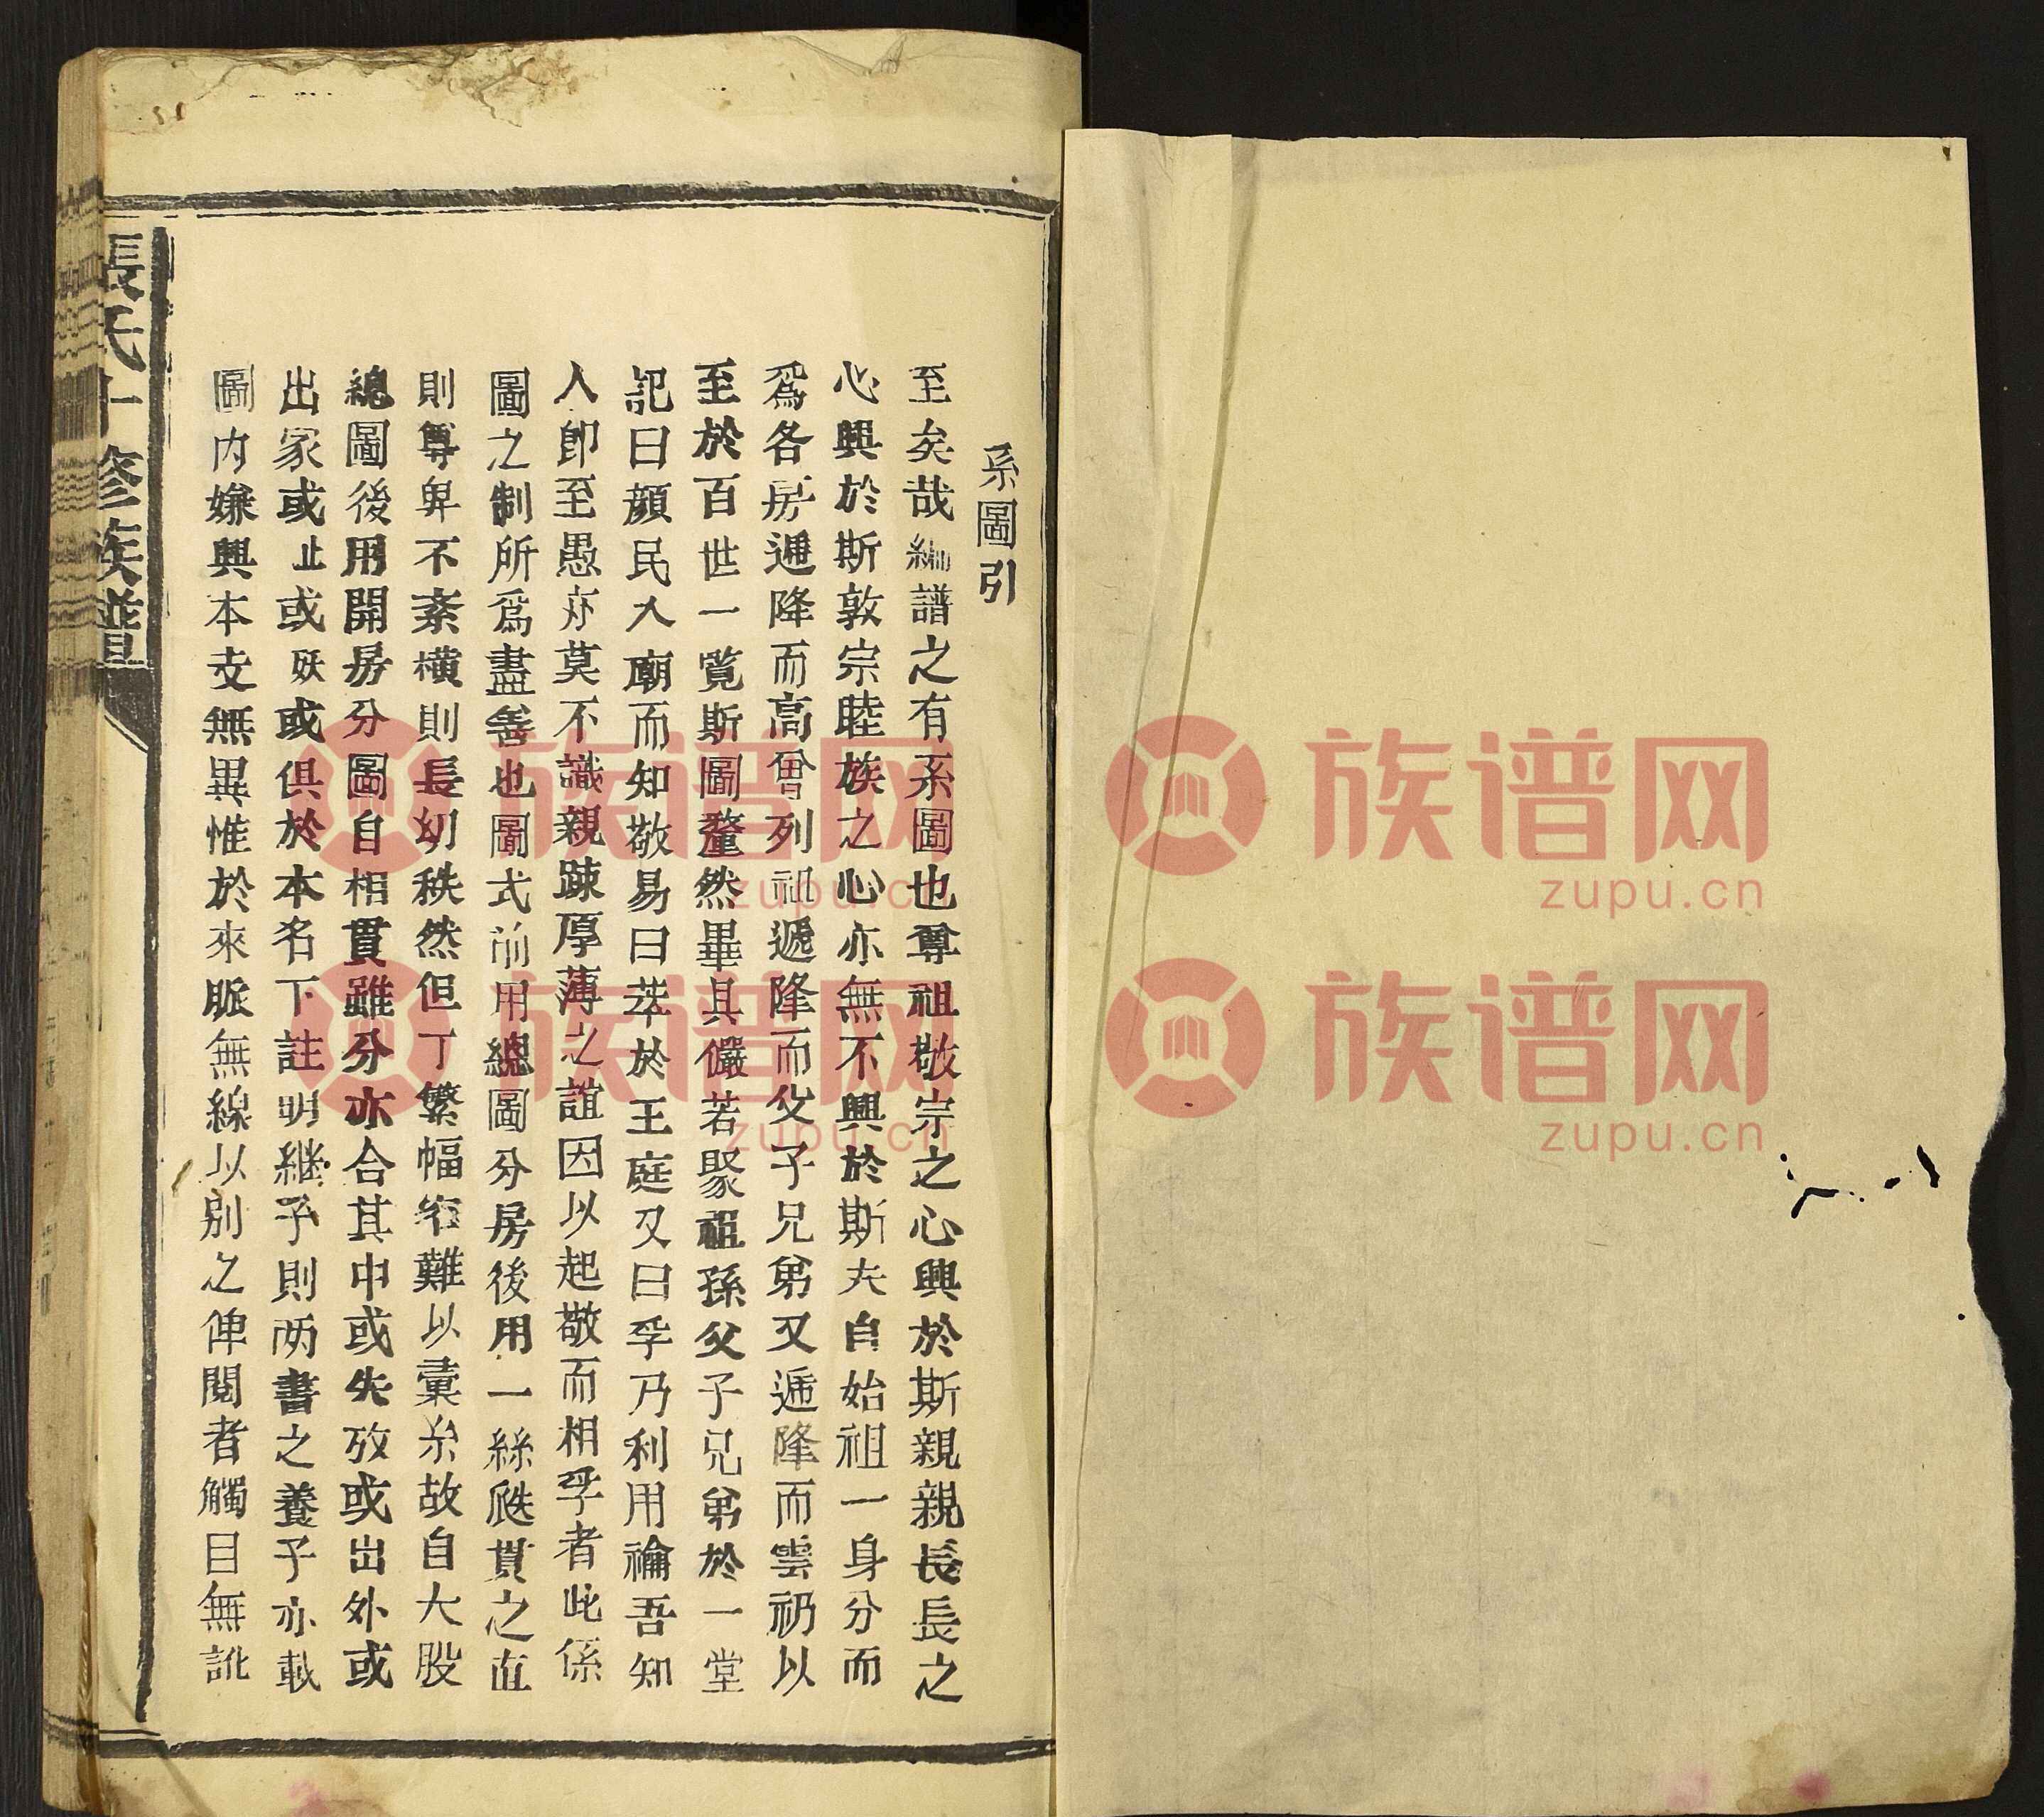 系圖引
至矣哉編譜之有系圖也尊祖敬宗之心興於斯親親長長之
心興於斯敦宗睦族之心亦無不興於斯夫自始祖一身分而
爲各房遞降而高曾列祖遞降而父子兄弟又遞降而雲礽以
至於百世一覧斯圖釐然畢具儼若聚祖孫父子兄弟於一堂
記曰顔民入廟而知敬易曰萃於王庭又曰孚乃利用禴吾知
人卽至愚亦莫不識親踈厚薄之誼因以起敬而相孚者此係
圖之制所爲盡善也圖式前用總圖分房後用一絲瓞貫之直
則尊卑不紊橫則長幼秩然但丁繁幅窄難以彙糸故自大股
總圖後用開房分圖自相貫雖分亦合其中或失攷或出外或
出家或止或殀或俱於本名下註明継子則两書之養子亦載
圖内嫌興本支無異惟於來脈無線以别之俾閱者觸目無訛
張氏十修族譜
族谱网
zupu.cn
族谱网
zupu.cn
族谱网
zupu.cn
族谱网
zupu.cn